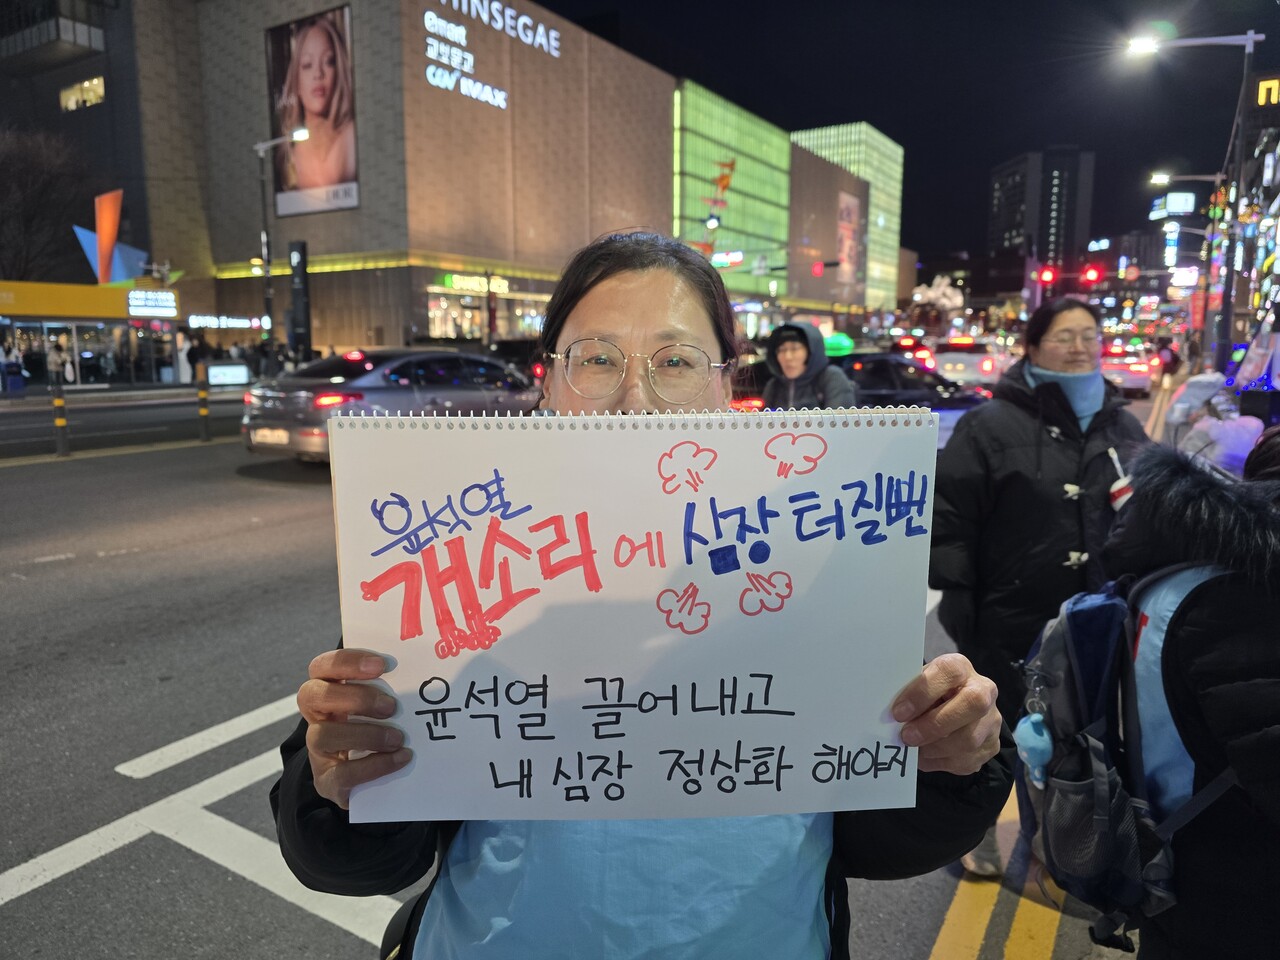 SHINSEGAE
emart
교보문고
CGV IMAX
윤석열
개소리에 심장 터질뻔
윤석열 끌어내고
내 심장 정상화 해야지